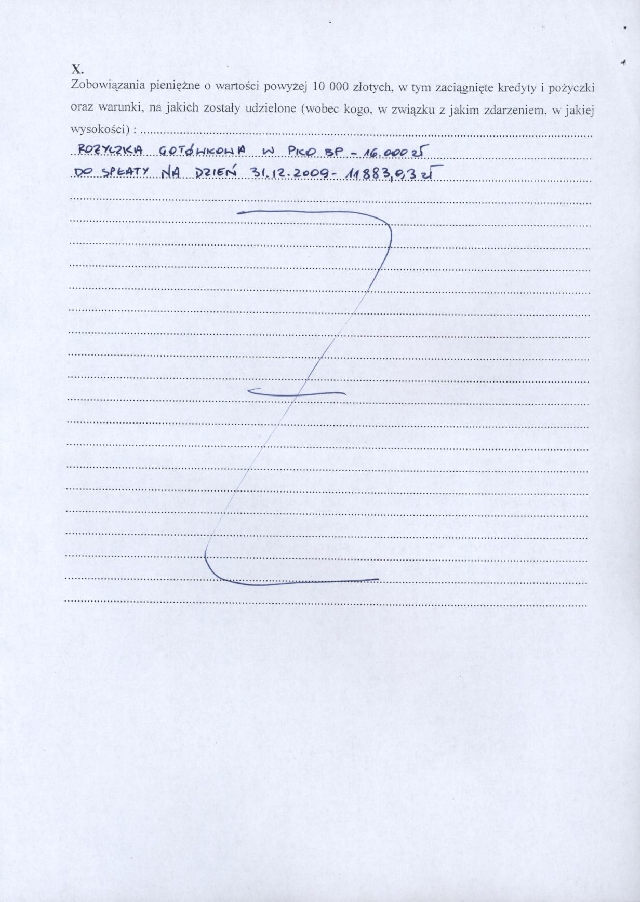 X.
Zobowiązania pieniężne o wartości powyżej 10 000 złotych, w tym zaciągnięte kredyty i pożyczki
oraz warunki, na jakich zostały udzielone (wobec kogo, w związku z jakim zdarzeniem, w jakiej
wysokości) :
POŻYCZKA GOTÓWKOWA W PKO BP - 16.000 zł
DO SPŁATY NA DZIEŃ 31.12.2009 - 11 883,03 zł